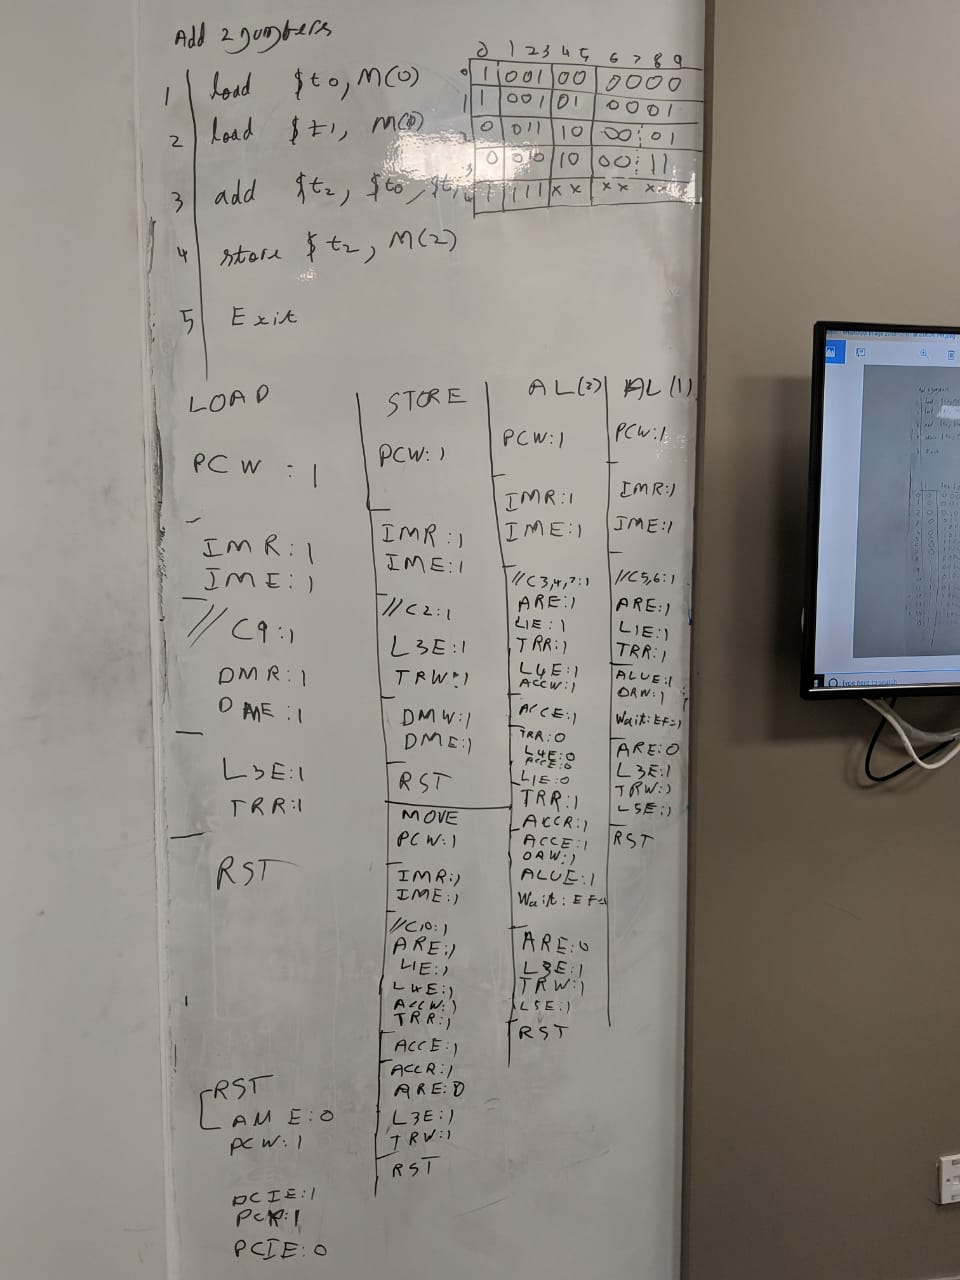 Add 2 numbers
1 load $t0, M(0)
2 load $t1, M(0)
3 add $t2, $t0, $t1
4 store $t2, M(2)
5 Exit
0 1 2 3 4 5 6 7 8 9
0 1 001 00 0000
1 1 001 01 0001
2 0 011 10 00:01
3 0 010 10 00:11
4 1 111 xx xx xx
LOAD
PCW:1
IMR:1
IME:1
//C9:1
DMR:1
DME:1
L3E:1
TRR:1
RST
RST
AME:0
PCW:1
PCIE:1
PCR:1
PCIE:0
STORE
PCW:1
IMR:1
IME:1
//C2:1
L3E:1
TRW:1
DMW:1
DME:1
RST
MOVE
PCW:1
IMR:1
IME:1
//C10:1
ARE:1
L1E:1
L4E:1
ACCW:1
TRR:1
ACCE:1
ACCR:1
ARE:0
L3E:1
TRW:1
RST
AL(2)
PCW:1
IMR:1
IME:1
//C3,4,7:1
ARE:1
L1E:1
TRR:1
L4E:1
ACCW:1
ACCE:1
TRR:0
L4E:0
ACCE:0
L1E:0
TRR:1
ACCR:1
ACCE:1
OAW:1
ALUE:1
Wait:EF=1
ARE:0
L3E:1
TRW:1
L5E:1
RST
AL(1)
PCW:1
IMR:1
IME:1
//C5,6:1
ARE:1
L1E:1
TRR:1
ALUE:1
OAW:1
Wait:EF=1
ARE:0
L3E:1
TRW:1
L5E:1
RST
Type here to search